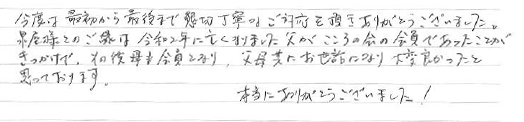 今度は最初から最後まで懇切丁寧なご対応を頂きありがとうございました。
泉屋様とのご縁は令和2年に亡くなりました父がこころの会の会員であったことが
きっかけで、その後母も会員となり、父母共にお世話になり大変良かったと
思っております。
本当にありがとうございました！